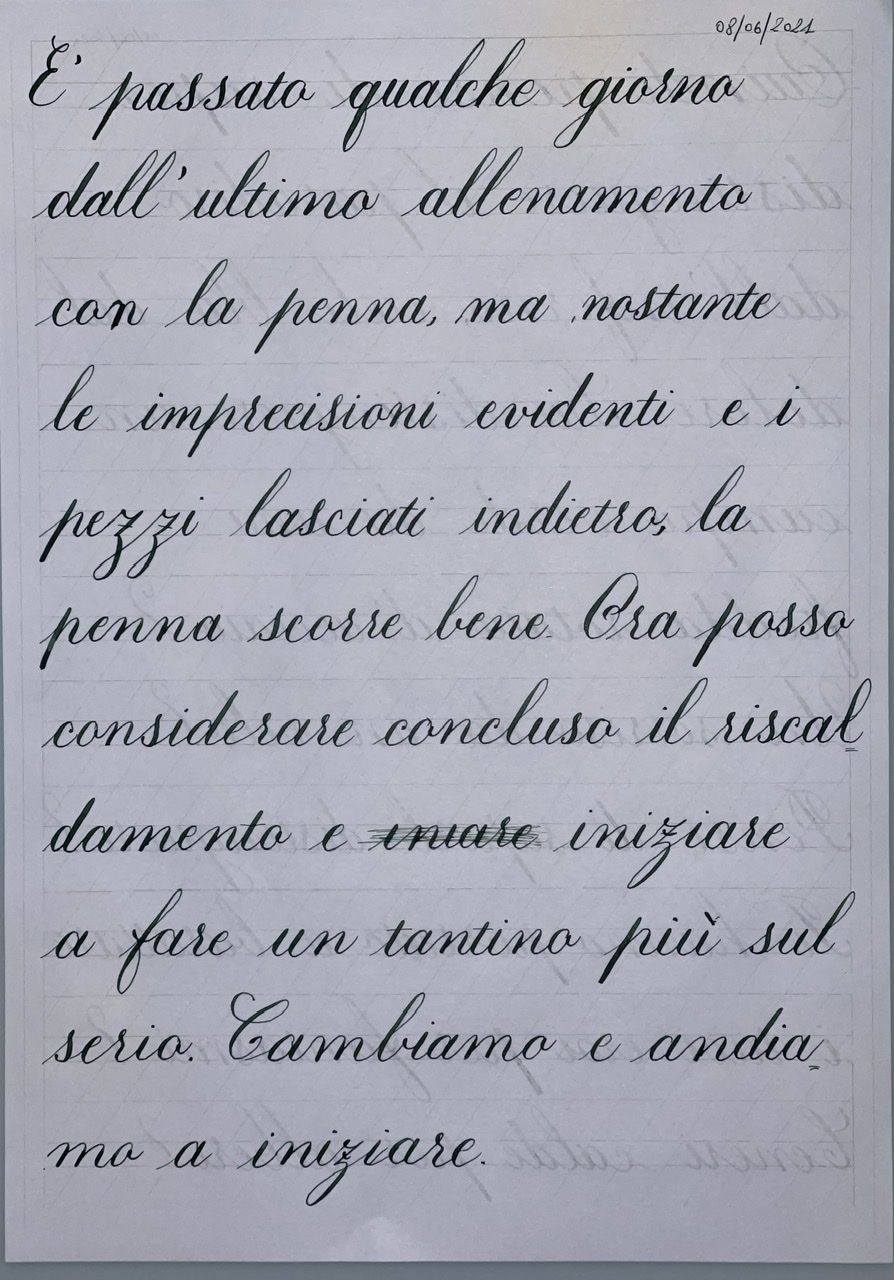 08/06/2021
E' passato qualche giorno
dall'ultimo allenamento
con la penna, ma nostante
le imprecisioni evidenti e i
pezzi lasciati indietro, la
penna scorre bene. Ora posso
considerare concluso il riscal
damento e iniziare
a fare un tantino più sul
serio. Cambiamo e andia
mo a iniziare.